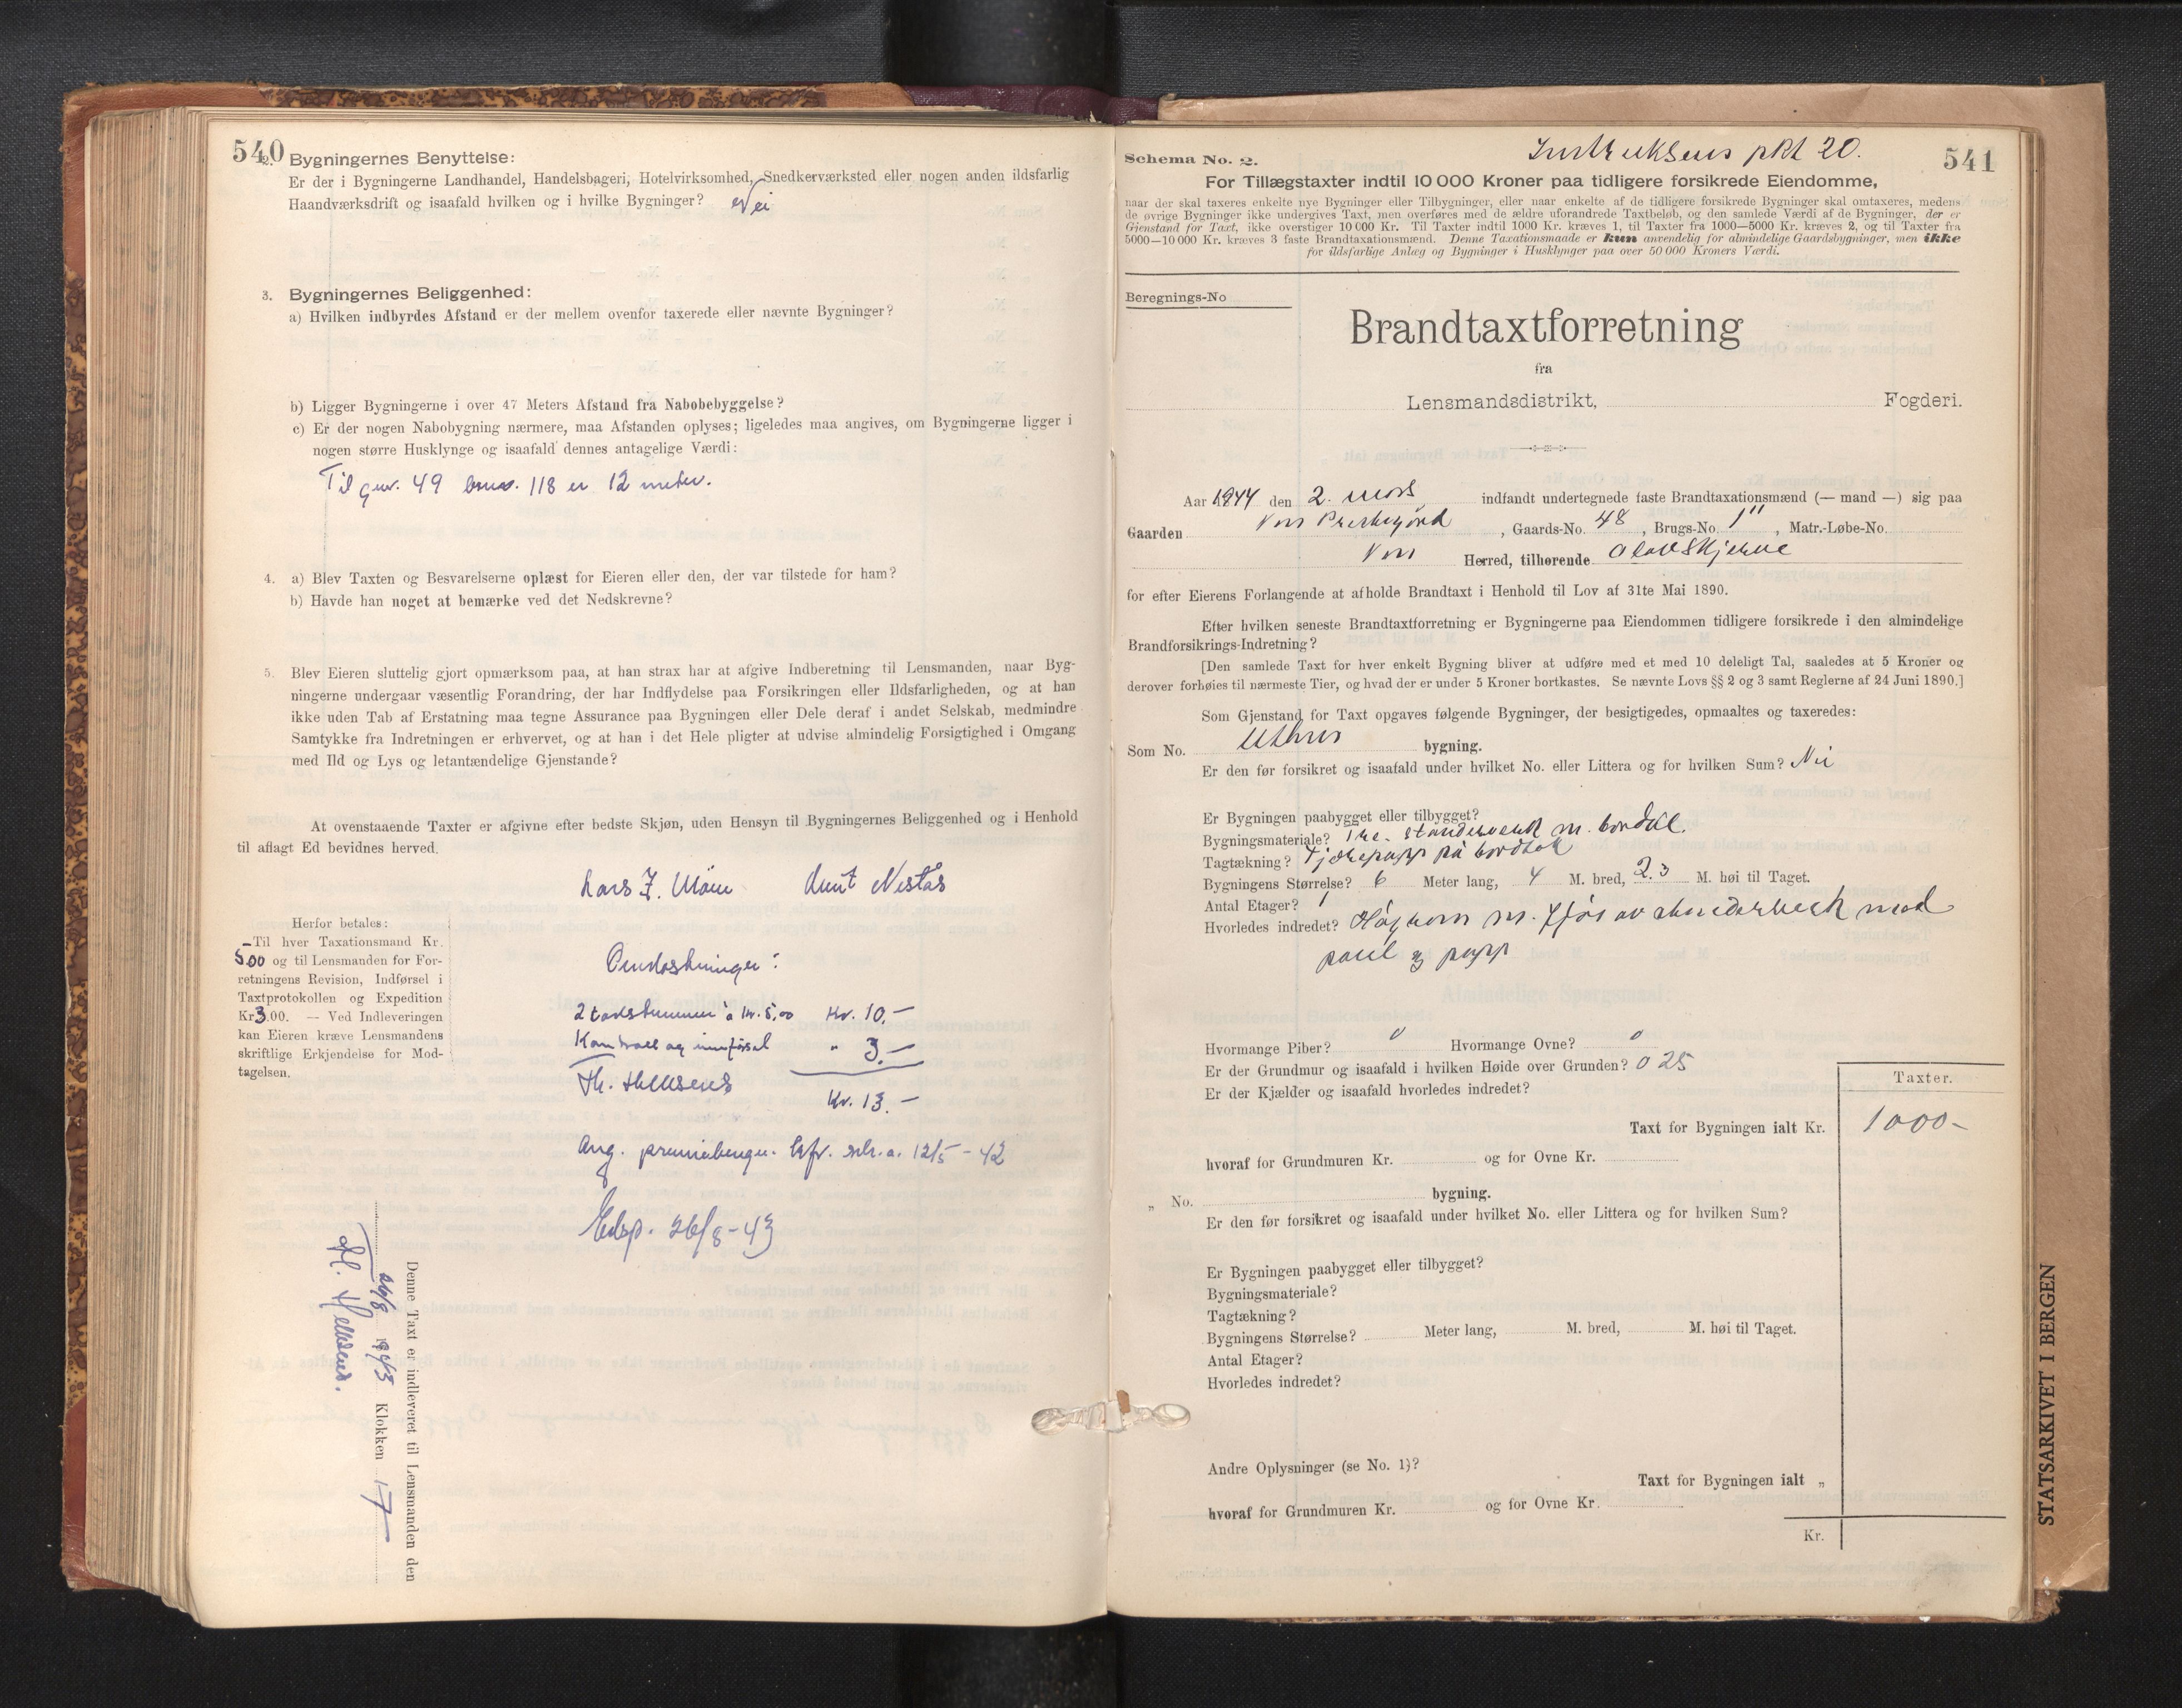 540
2. Bygningernes Benyttelse:
Er der i Bygningerne Landhandel, Handelsbageri, Hotelvirksomhed, Snedkerværksted eller nogen anden ildsfarlig
Haandværksdrift og isaafald hvilken og i hvilke Bygninger? Nei
3. Bygningernes Beliggenhed:
a) Hvilken indbyrdes Afstand er der mellem ovenfor taxerede eller nævnte Bygninger?
b) Ligger Bygningerne i over 47 Meters Afstand fra Nabobebyggelse?
c) Er der nogen Nabobygning nærmere, maa Afstanden oplyses; ligeledes maa angives, om Bygningerne ligger i
nogen større Husklynge og isaafald dennes antagelige Værdi:
Til gnr. 49 bnr. 118 er 12 meter.
4. a) Blev Taxten og Besvarelserne oplæst for Eieren eller den, der var tilstede for ham?
b) Havde han noget at bemærke ved det Nedskrevne?
5. Blev Eieren sluttelig gjort opmærksom paa, at han strax har at afgive Indberetning til Lensmanden, naar Byg-
ningerne undergaar væsentlig Forandring, der har Indflydelse paa Forsikringen eller Ildsfarligheden, og at han
ikke uden Tab af Erstatning maa tegne Assurance paa Bygningen eller Dele deraf i andet Selskab, medmindre
Samtykke fra Indretningen er erhvervet, og at han i det Hele pligter at udvise almindelig Forsigtighed i Omgang
med Ild og Lys og letantændelige Gjenstande?
At ovenstaaende Taxter er afgivne efter bedste Skjøn, uden Hensyn til Bygningernes Beliggenhed og i Henhold
til aflagt Ed bevidnes herved.
Lars J. Møen Knut Nestås
Herfor betales:
Til hver Taxationsmand Kr.
5.00 og til Lensmanden for For-
retningens Revision, Indførsel i
Taxtprotokollen og Expedition
Kr 3.00. — Ved Indleveringen
kan Eieren kræve Lensmandens
skriftlige Erkjendelse for Mod-
tagelsen.
Omkostninger:
2 takstmenn a kr. 5,00 Kr. 10.-
Kontroll og innførsel " 3.-
Kr. 13.-
Ang. premieberegn. 12/5-42
Eksp. 26/8-43
Denne Taxt er indleveret til Lensmanden den
26/8 1943 Klokken 17
Schema No. 2.
Instruksens pkt 20.
541
For Tillægstaxter indtil 10 000 Kroner paa tidligere forsikrede Eiendomme,
naar der skal taxeres enkelte nye Bygninger eller Tilbygninger, eller naar enkelte af de tidligere forsikrede Bygninger skal omtaxeres, medens
de øvrige Bygninger ikke undergives Taxt, men overføres med de ældre uforandrede Taxtbeløb, og den samlede Værdi af de Bygninger, der er
Gjenstand for Taxt, ikke overstiger 10 000 Kr. Til Taxter indtil 1000 Kr. kræves 1, til Taxter fra 1000—5000 Kr. kræves 2, og til Taxter fra
5000—10 000 Kr. kræves 3 faste Brandtaxationsmænd. Denne Taxationsmaade er kun anvendelig for almindelige Gaardsbygninger, men ikke
for ildsfarlige Anlæg og Bygninger i Husklynger paa over 50 000 Kroners Værdi.
Beregnings-No
Brandtaxtforretning
fra
Lensmandsdistrikt, Fogderi.
Aar 1944 den 2. mars indfandt undertegnede faste Brandtaxationsmænd (— mand —) sig paa
Gaarden Voss Prestegård, Gaards-No. 48, Brugs-No. 1", Matr.-Løbe-No.
Voss Herred, tilhørende Olav Skjerve
for efter Eierens Forlangende at afholde Brandtaxt i Henhold til Lov af 31te Mai 1890.
Efter hvilken seneste Brandtaxtforretning er Bygningerne paa Eiendommen tidligere forsikrede i den almindelige
Brandforsikrings-Indretning?
[Den samlede Taxt for hver enkelt Bygning bliver at udføre med et med 10 deleligt Tal, saaledes at 5 Kroner og
derover forhøies til nærmeste Tier, og hvad der er under 5 Kroner bortkastes. Se nævnte Lovs §§ 2 og 3 samt Reglerne af 24 Juni 1890.]
Som Gjenstand for Taxt opgaves følgende Bygninger, der besigtigedes, opmaaltes og taxeredes:
Som No. Uthus bygning.
Er den før forsikret og isaafald under hvilket No. eller Littera og for hvilken Sum? Nei
Er Bygningen paabygget eller tilbygget?
Bygningsmateriale? Tre. standerverk m. bordkl.
Tagtækning? Tjærepapp på bordtak
Bygningens Størrelse? 6 Meter lang, 4 M. bred, 2.3 M. høi til Taget.
Antal Etager? 1
Hvorledes indredet? Høyrom m. fjøs av standerverk med
panel og papp
Hvormange Piber? 0 Hvormange Ovne? 0
Er der Grundmur og isaafald i hvilken Høide over Grunden? 0 25
Er der Kjælder og isaafald hvorledes indredet?
Taxter.
Taxt for Bygningen ialt Kr. 1000-
hvoraf for Grundmuren Kr. og for Ovne Kr.
„ No. bygning.
Er den før forsikret og isaafald under hvilket No. eller Littera og for hvilken Sum?
Er Bygningen paabygget eller tilbygget?
Bygningsmateriale?
Tagtækning?
Bygningens Størrelse? Meter lang, M. bred, M. høi til Taget.
Antal Etager?
Hvorledes indredet?
Andre Oplysninger (se No. 1)?
Taxt for Bygningen ialt „
hvoraf for Grundmuren Kr. og for Ovne Kr.
Kr.
STATSARKIVET I BERGEN